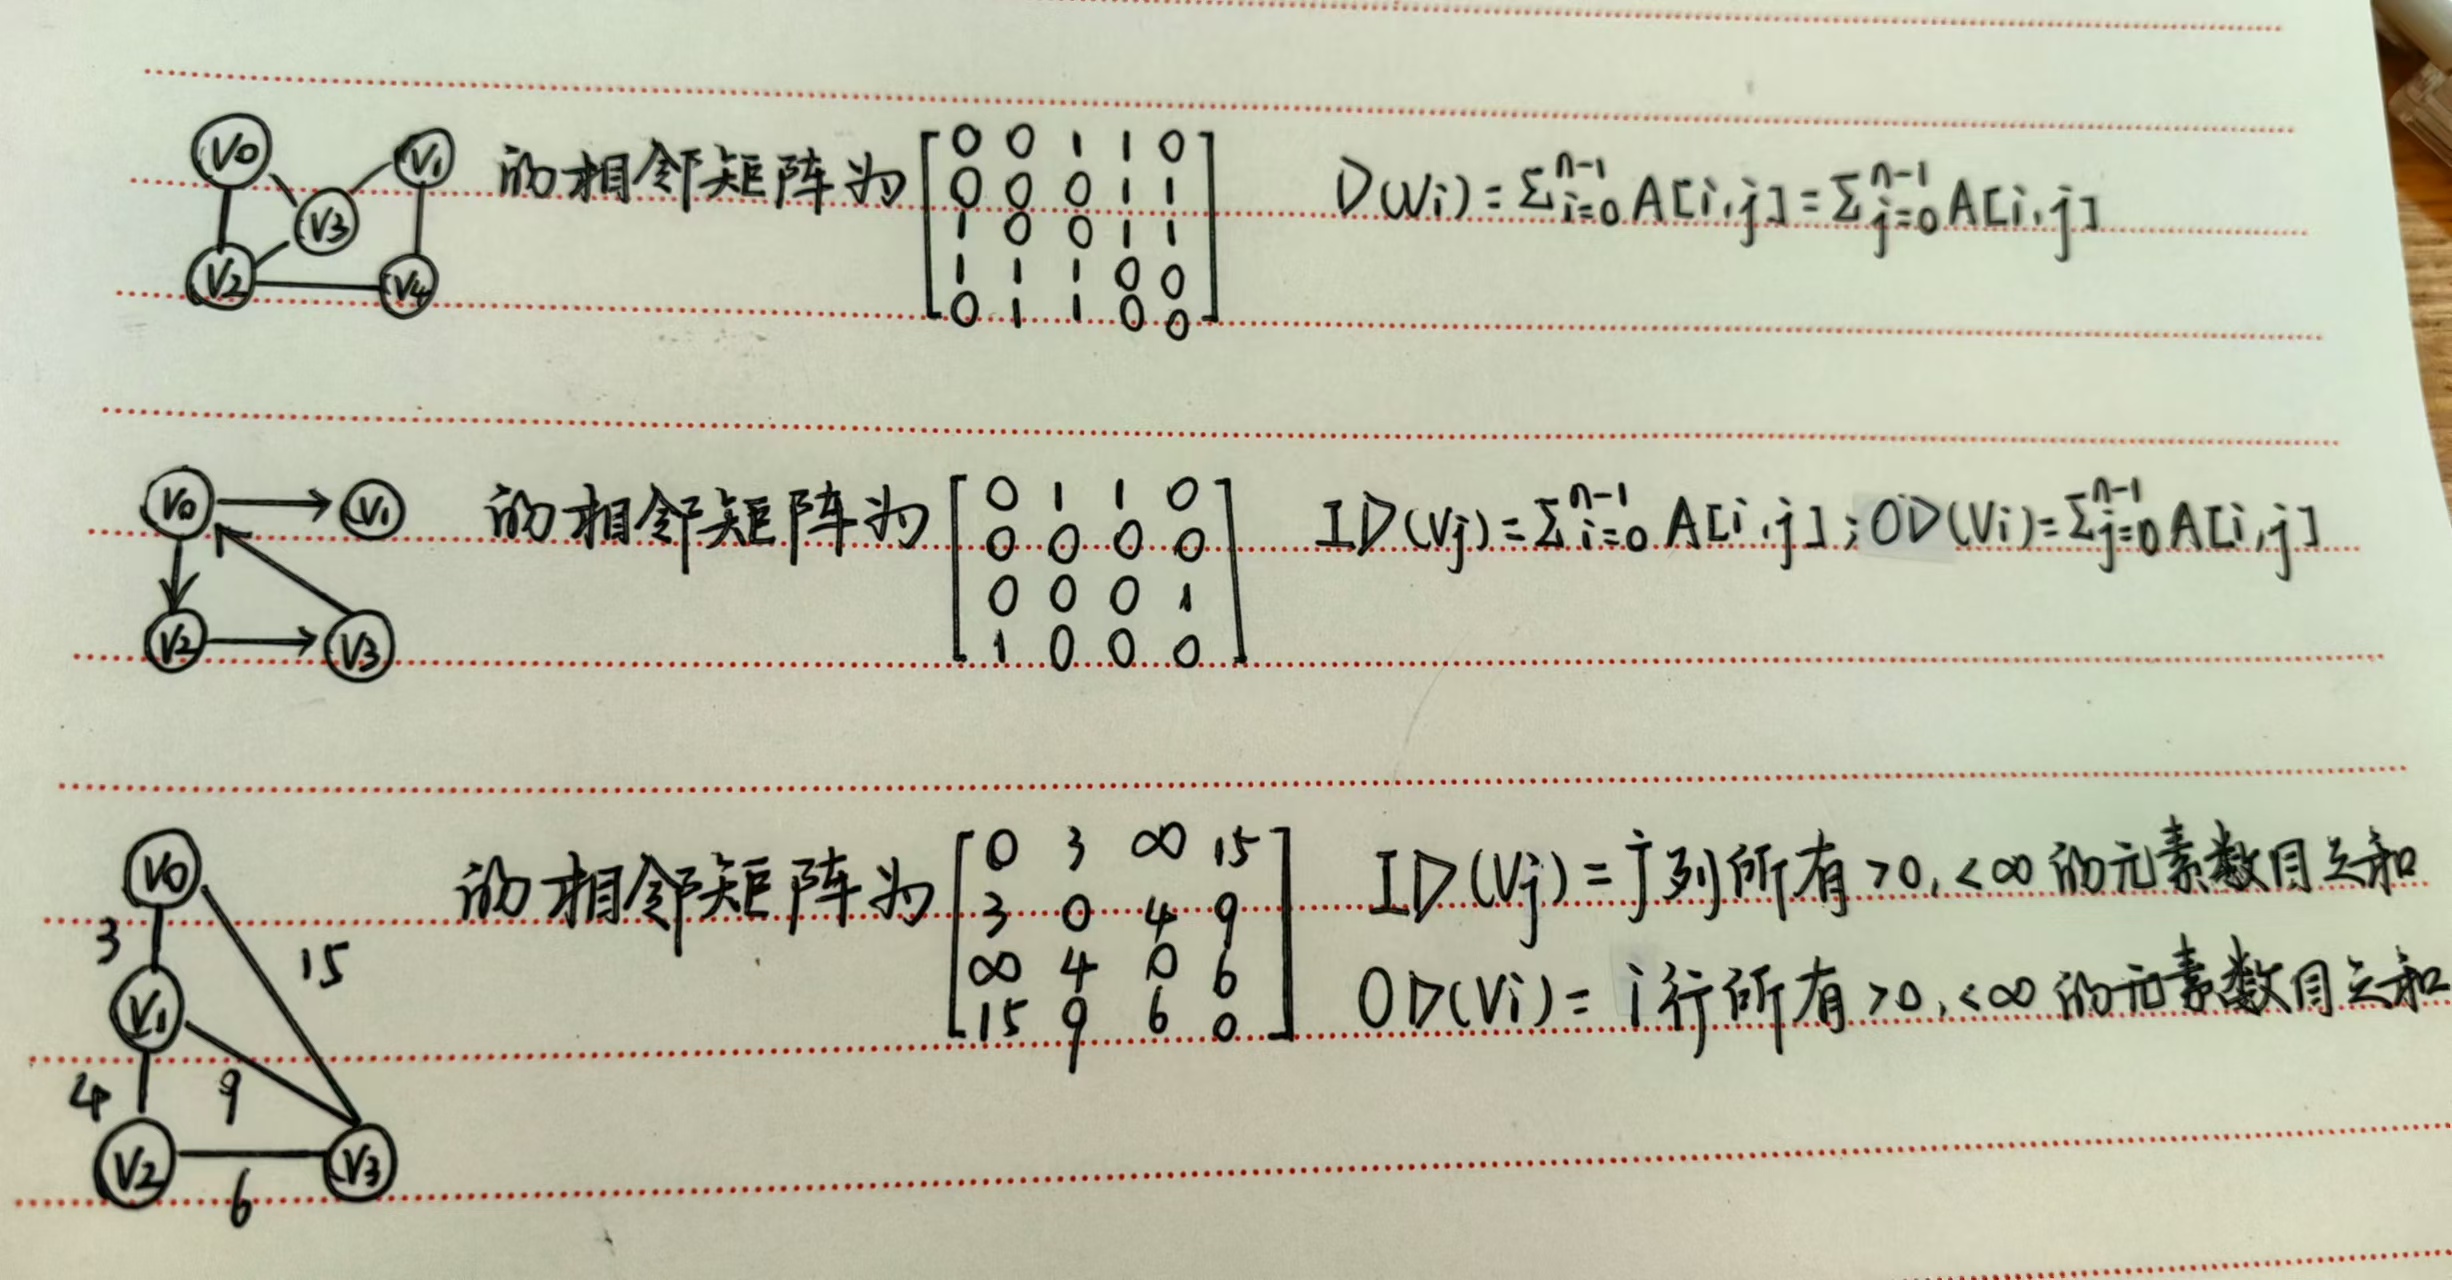 V0 V1 V3 V2 V4
的相邻矩阵为
0 0 1 1 0
0 0 0 1 1
1 0 0 1 1
1 1 1 0 0
0 1 1 0 0
D(Vi) = Σ_{i=0}^{n-1} A[i,j] = Σ_{j=0}^{n-1} A[i,j]
V0 V1 V2 V3
的相邻矩阵为
0 1 1 0
0 0 0 0
0 0 0 1
1 0 0 0
ID(Vj) = Σ_{i=0}^{n-1} A[i,j]; OD(Vi) = Σ_{j=0}^{n-1} A[i,j]
V0
3 15
V1
4 9
V2 V3
6
的相邻矩阵为
0 3 ∞ 15
3 0 4 9
∞ 4 0 6
15 9 6 0
ID(Vj) = j列所有>0,<∞的元素数目之和
OD(Vi) = i行所有>0,<∞的元素数目之和